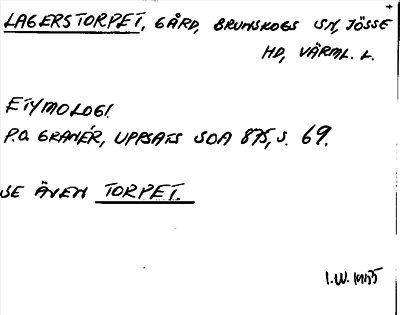 LAGERSTORPET, GÅRD, BRUNSKOGS SN, JÖSSE
HD, VÄRML. L.
ETYMOLOGI.
P.O. GRANÉR, UPPSATS SOA 875, S. 69.
SE ÄVEN TORPET.
I.W.